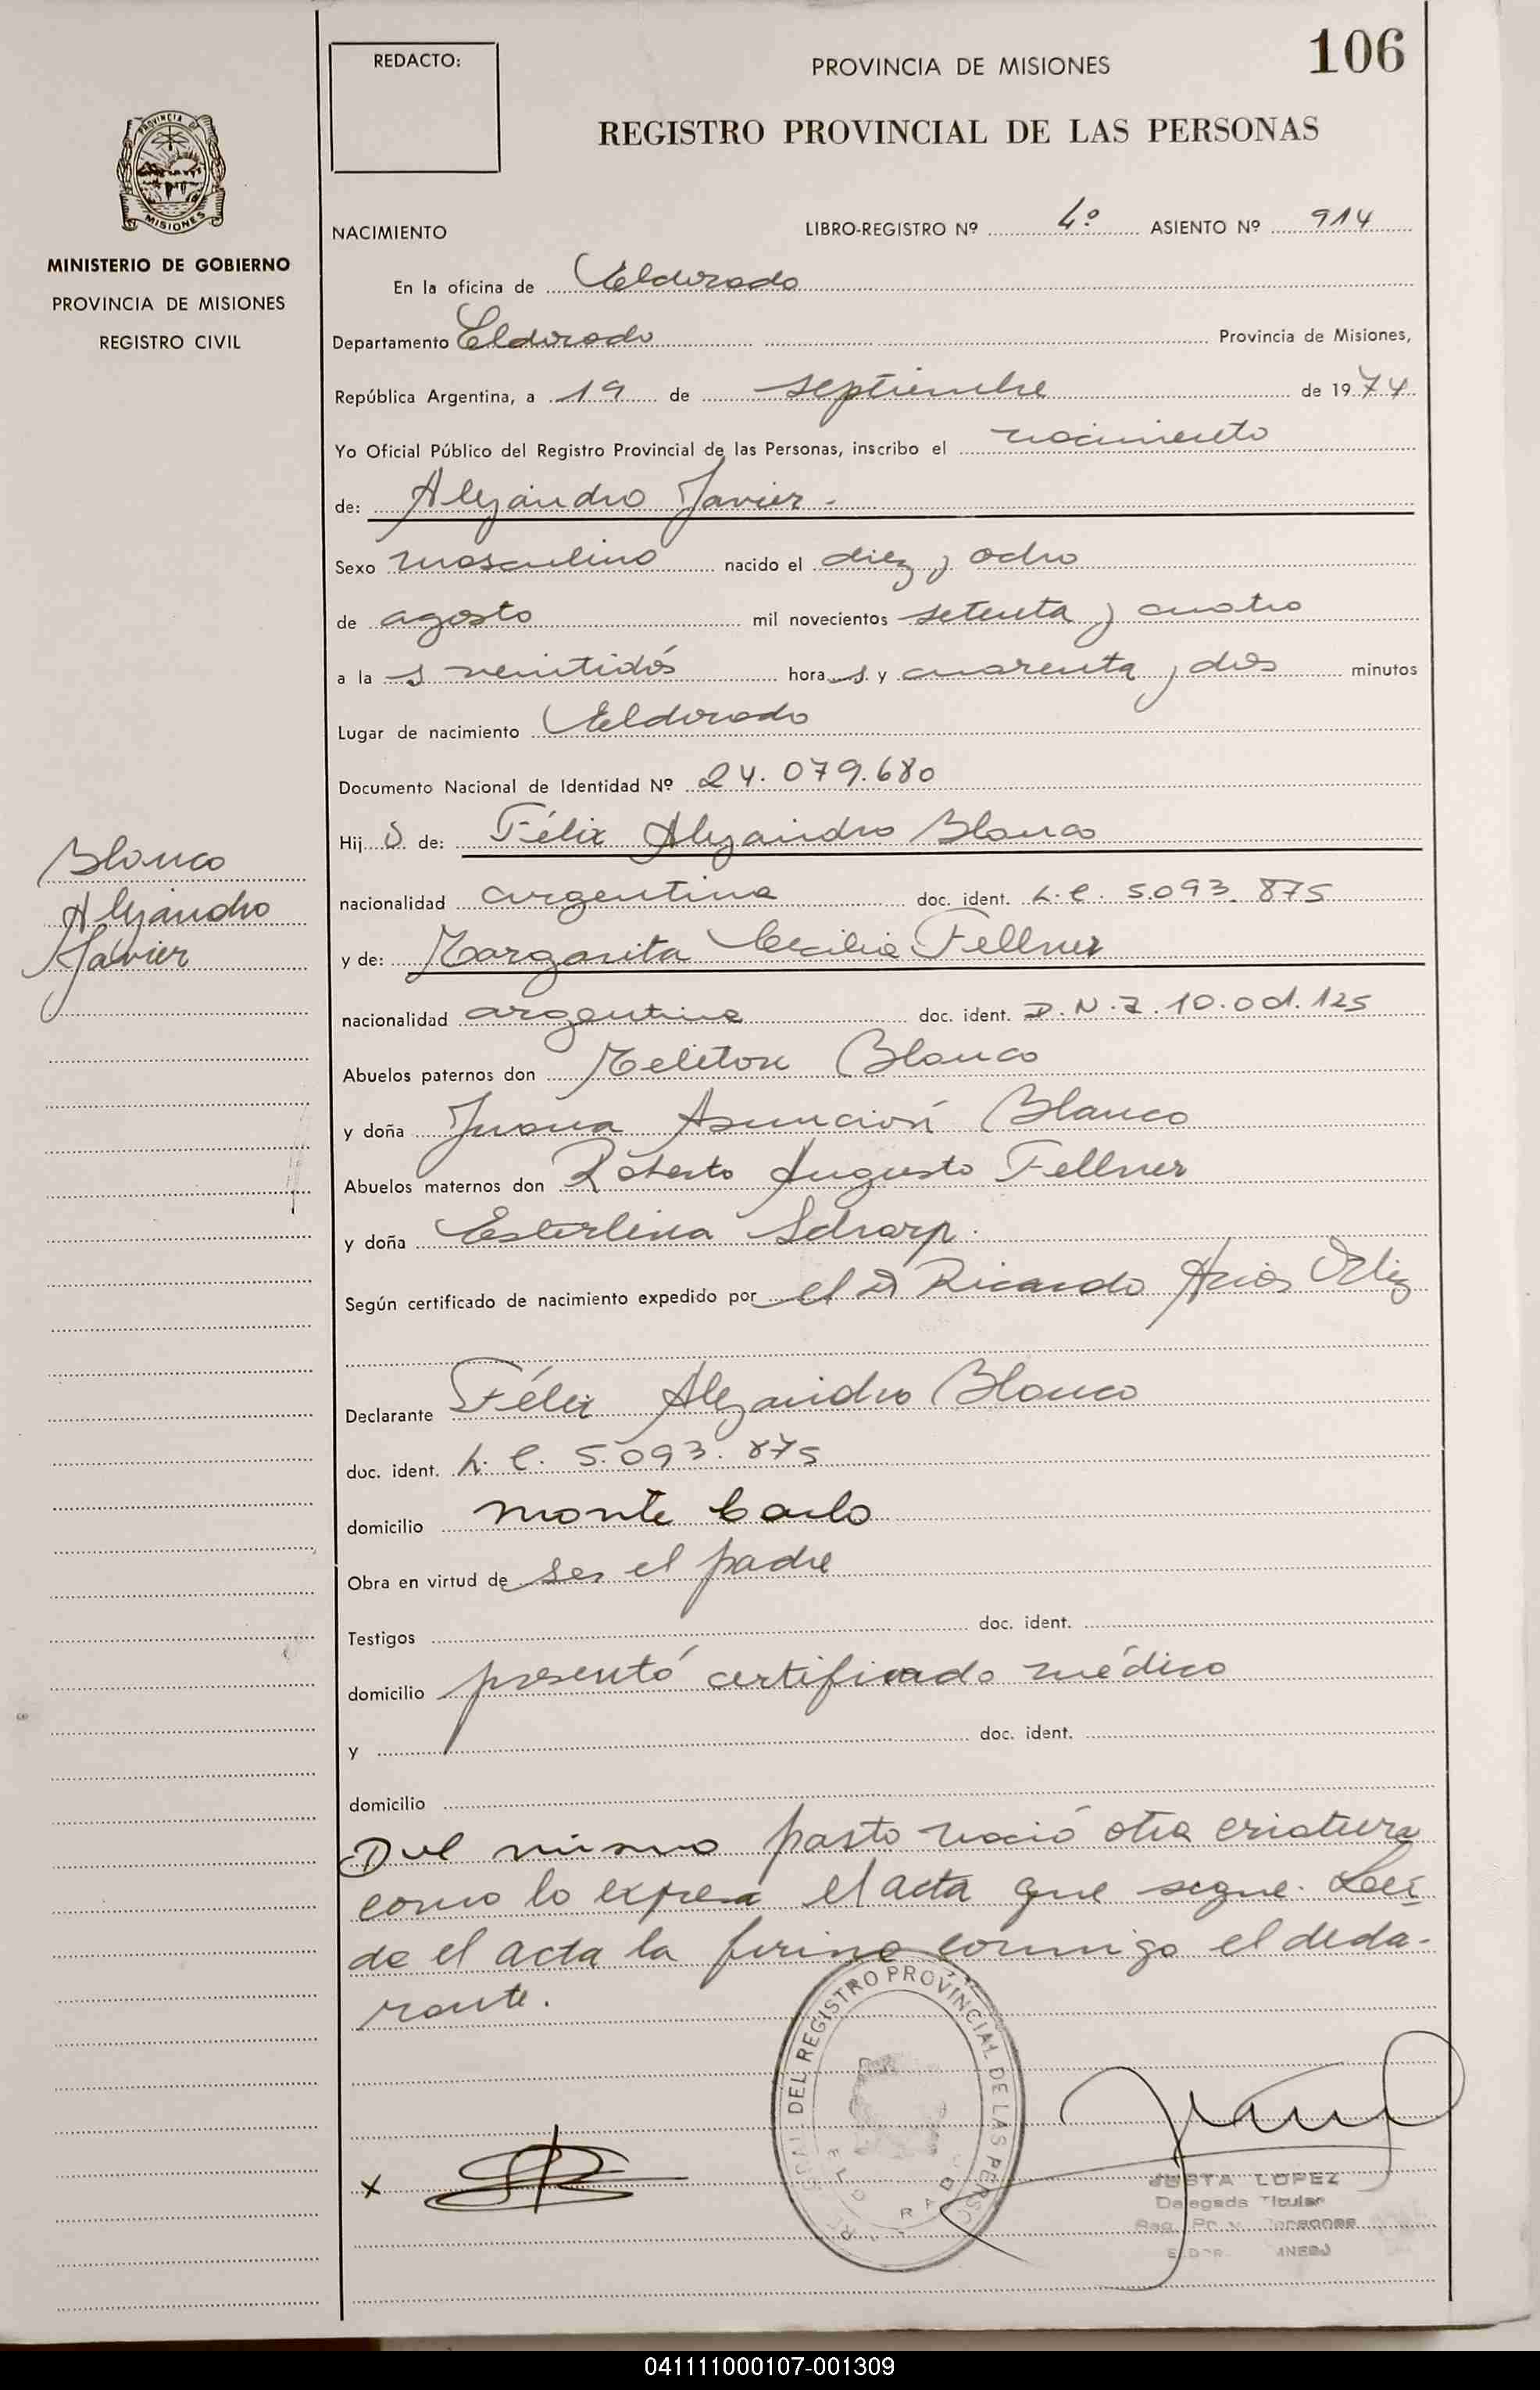 REDACTO:
PROVINCIA DE MISIONES
106
REGISTRO PROVINCIAL DE LAS PERSONAS
PROVINCIA DE
MISIONES
MINISTERIO DE GOBIERNO
PROVINCIA DE MISIONES
REGISTRO CIVIL
NACIMIENTO
LIBRO-REGISTRO Nº 4º ASIENTO Nº 914
En la oficina de Eldorado
Departamento Eldorado Provincia de Misiones,
República Argentina, a 19 de septiembre de 1974
Yo Oficial Público del Registro Provincial de las Personas, inscribo el nacimiento
de: Alejandro Javier.-
Sexo masculino nacido el diez y ocho
de agosto mil novecientos setenta y cuatro
a la s veintidós hora s y cuarenta y dos minutos
Lugar de nacimiento Eldorado
Documento Nacional de Identidad Nº 24.079.680
Hij o de: Félix Alejandro Blanco
Blanco
Alejandro
Javier
nacionalidad argentina doc. ident. L.E. 5.093.875
y de: Margarita Cecilia Fellner
nacionalidad argentina doc. ident. D.N.I. 10.001.125
Abuelos paternos don Meliton Blanco
y doña Juana Asunción Blanco
Abuelos maternos don Roberto Augusto Fellner
y doña Esterlina Scharp.
Según certificado de nacimiento expedido por el Dr Ricardo Arias Ortiz
Declarante Félix Alejandro Blanco
doc. ident. L.E. 5.093.875
domicilio Monte Carlo
Obra en virtud de ser el padre
Testigos doc. ident.
domicilio presentó certificado médico
y doc. ident.
domicilio
Del mismo parto nació otra criatura
como lo expresa el acta que sigue. Leí-
da el acta la firma conmigo el decla-
rante.
DEL REGISTRO PROVINCIAL DE LAS PERSO
x
JUSTA LOPEZ
Delegada Titular
041111000107-001309